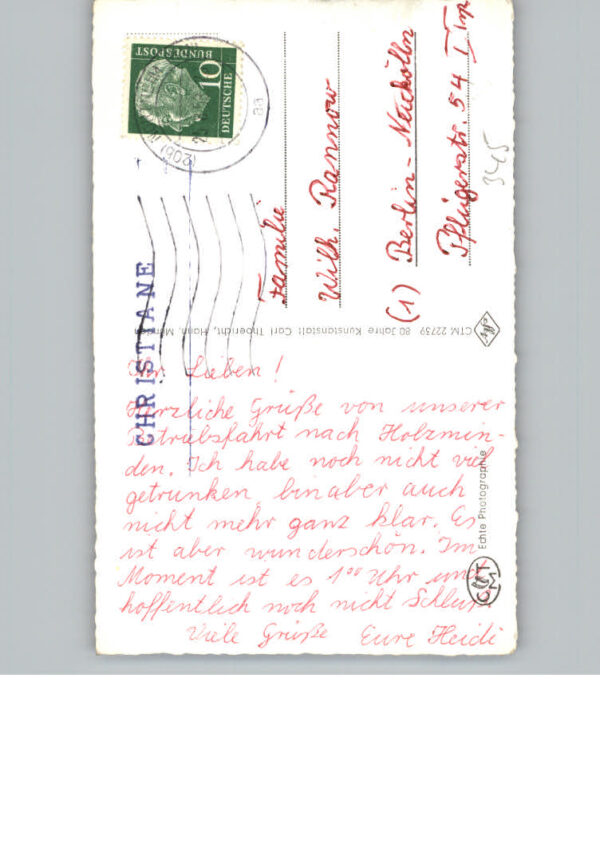 Ihr Lieben!
Herzliche Grüße von unserer
Betriebsfahrt nach Holzmin-
den. Ich habe noch nicht viel
getrunken, bin aber auch
nicht mehr ganz klar. Es
ist aber wunderschön. Im
Moment ist es 1⁰⁰ Uhr und
hoffentlich noch nicht Schluß.
Viele Grüße Eure Heidi
Familie
Wilh. Rannow
(1) Berlin-Neukölln
Pflügerstr. 54 I Trp
345
CHRISTIANE
DEUTSCHE
BUNDESPOST
10
(20b)
aa
CTM 22739 80 Jahre Kunstanstalt Carl Thoericht, Hann. Münden
Echte Photographie
CTM